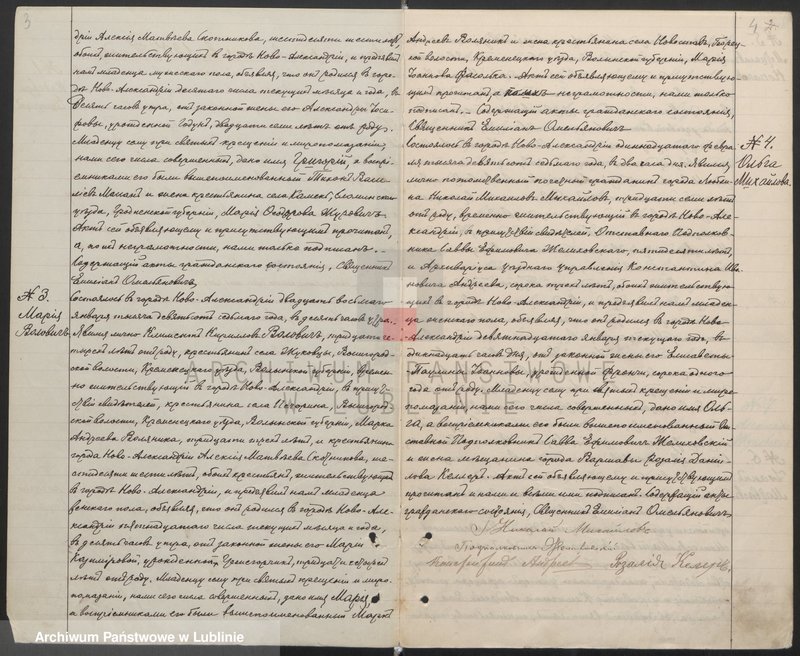 3
дрій Алексія Матвѣева Скотникова, шестидесяти шести лѣтъ,
обоихъ жительствующихъ въ городѣ Ново-Александріи, и предъявилъ
намъ младенца мужескаго пола, объявляя, что онъ родился въ горо-
дѣ Ново-Александріи десятаго числа текущаго мѣсяца и года, въ
десять часовъ утра, отъ законной жены его Александры Оси-
ровы, урожденной двадцати семи лѣтъ отъ роду.
Младенцу сему при святомъ крещеніи и миропомазаніи,
нами сего числа совершенномъ, дано имя Григорій, а воспрі-
емниками его были вышепоименованный Тихонъ
и жена крестьянина села Слонимскаго
уѣзда, Гродненской губерніи, Марія Жуковичъ.
Актъ сей объявляющему и присутствующимъ прочитанъ,
а, по ихъ неграмотности, нами только подписанъ.
Содержащій акты гражданскаго состоянія, Священникъ
Емиліанъ Омельяновичъ
№ 3.
Марія
Валовичъ
Состоялось въ городѣ Ново-Александріи двадцать восьмаго
января тысяча девятьсотъ седьмаго года, въ десять часовъ утра.
Явился лично Климентъ Кирилловъ Валовичъ, тридцати че-
тырехъ лѣтъ отъ роду, крестьянинъ села Жуковцы, Вышгород-
ской волости, Кременецкаго уѣзда, Волынской губерніи, времен-
но жительствующій въ городѣ Ново-Александріи, въ прису-
тствіи свидѣтелей, крестьянина села Вышгород-
ской волости, Кременецкаго уѣзда, Волынской губерніи, Марка
Андреева Воляника, тридцати трехъ лѣтъ, и крестьянина
города Ново-Александріи Алексія Матвѣева Скотникова, ше-
стидесяти шести лѣтъ, обоихъ крестьянъ, жительствующихъ
въ городѣ Ново-Александріи, и предъявилъ намъ младенца
женскаго пола, объявляя, что онъ родился въ городѣ Ново-Але-
ксандріи пятнадцатаго числа текущаго мѣсяца и года,
въ десять часовъ утра, отъ законной жены его Маріи
Казиміровой, урожденной тридцати четырехъ
лѣтъ отъ роду. Младенцу сему при святомъ крещеніи и миро-
помазаніи, нами сего числа совершенномъ, дано имя Марія,
а воспріемниками его были вышепоименованный Маркъ
4
Андреевъ Воляникъ и жена крестьянина села Новоставъ,
кой волости, Кременецкаго уѣзда, Волынской губерніи, Марія
Іоаннова Фасолка. Актъ сей объявляющему и присутствую-
щимъ прочитанъ, а неграмотности, нами только
подписанъ. Содержащій акты гражданскаго состоянія,
Священникъ Емиліанъ Омельяновичъ
№ 4.
Ольга
Михайлова
Состоялось въ городѣ Ново-Александріи одиннадцатаго февра-
ля тысяча девятьсотъ седьмаго года, въ два часа дня. Явился
лично потомственный почетный гражданинъ города Любли-
на Николай Михаиловъ Михайловъ, тридцати семи лѣтъ
отъ роду, временно жительствующій въ городѣ Ново-Але-
ксандріи, въ присутствіи свидѣтелей, отставнаго Подполков-
ника Саввы Ефимовича Желиховскаго, пятидесяти лѣтъ,
и Архиваріуса уѣзднаго Управленія Константина Ива-
новича Андреева, сорока трехъ лѣтъ, обоихъ жительствую-
щихъ въ городѣ Ново-Александріи, и предъявилъ намъ младен-
ца женскаго пола, объявляя, что онъ родился въ городѣ Ново-
Александріи девятнадцатаго января текущаго года, въ
одиннадцать часовъ дня, отъ законной жены его Елисаветы-
Паулины Ивановны, урожденной Френчи, сорока одного
года отъ роду. Младенцу сему при святомъ крещеніи и миро-
помазаніи, нами сего числа совершенномъ, дано имя Оль-
га, а воспріемниками его были вышепоименованный От-
ставной Подполковникъ Савва Ефимовичъ Желиховскій
и жена мѣщанина города Варшавы Розалія Дани-
лова Келлеръ. Актъ сей объявляющему и присутствующимъ
прочитанъ и нами и всѣми ими подписанъ. Содержащій акты
гражданскаго состоянія, Священникъ Емиліанъ Омельяновичъ
Николай Михайловъ
Подполковникъ Желиховскій
Константинъ Андреевъ Розалія Келлеръ.
ARCHIWUM PAŃSTWOWE
W LUBLINIE
Archiwum Państwowe w Lublinie